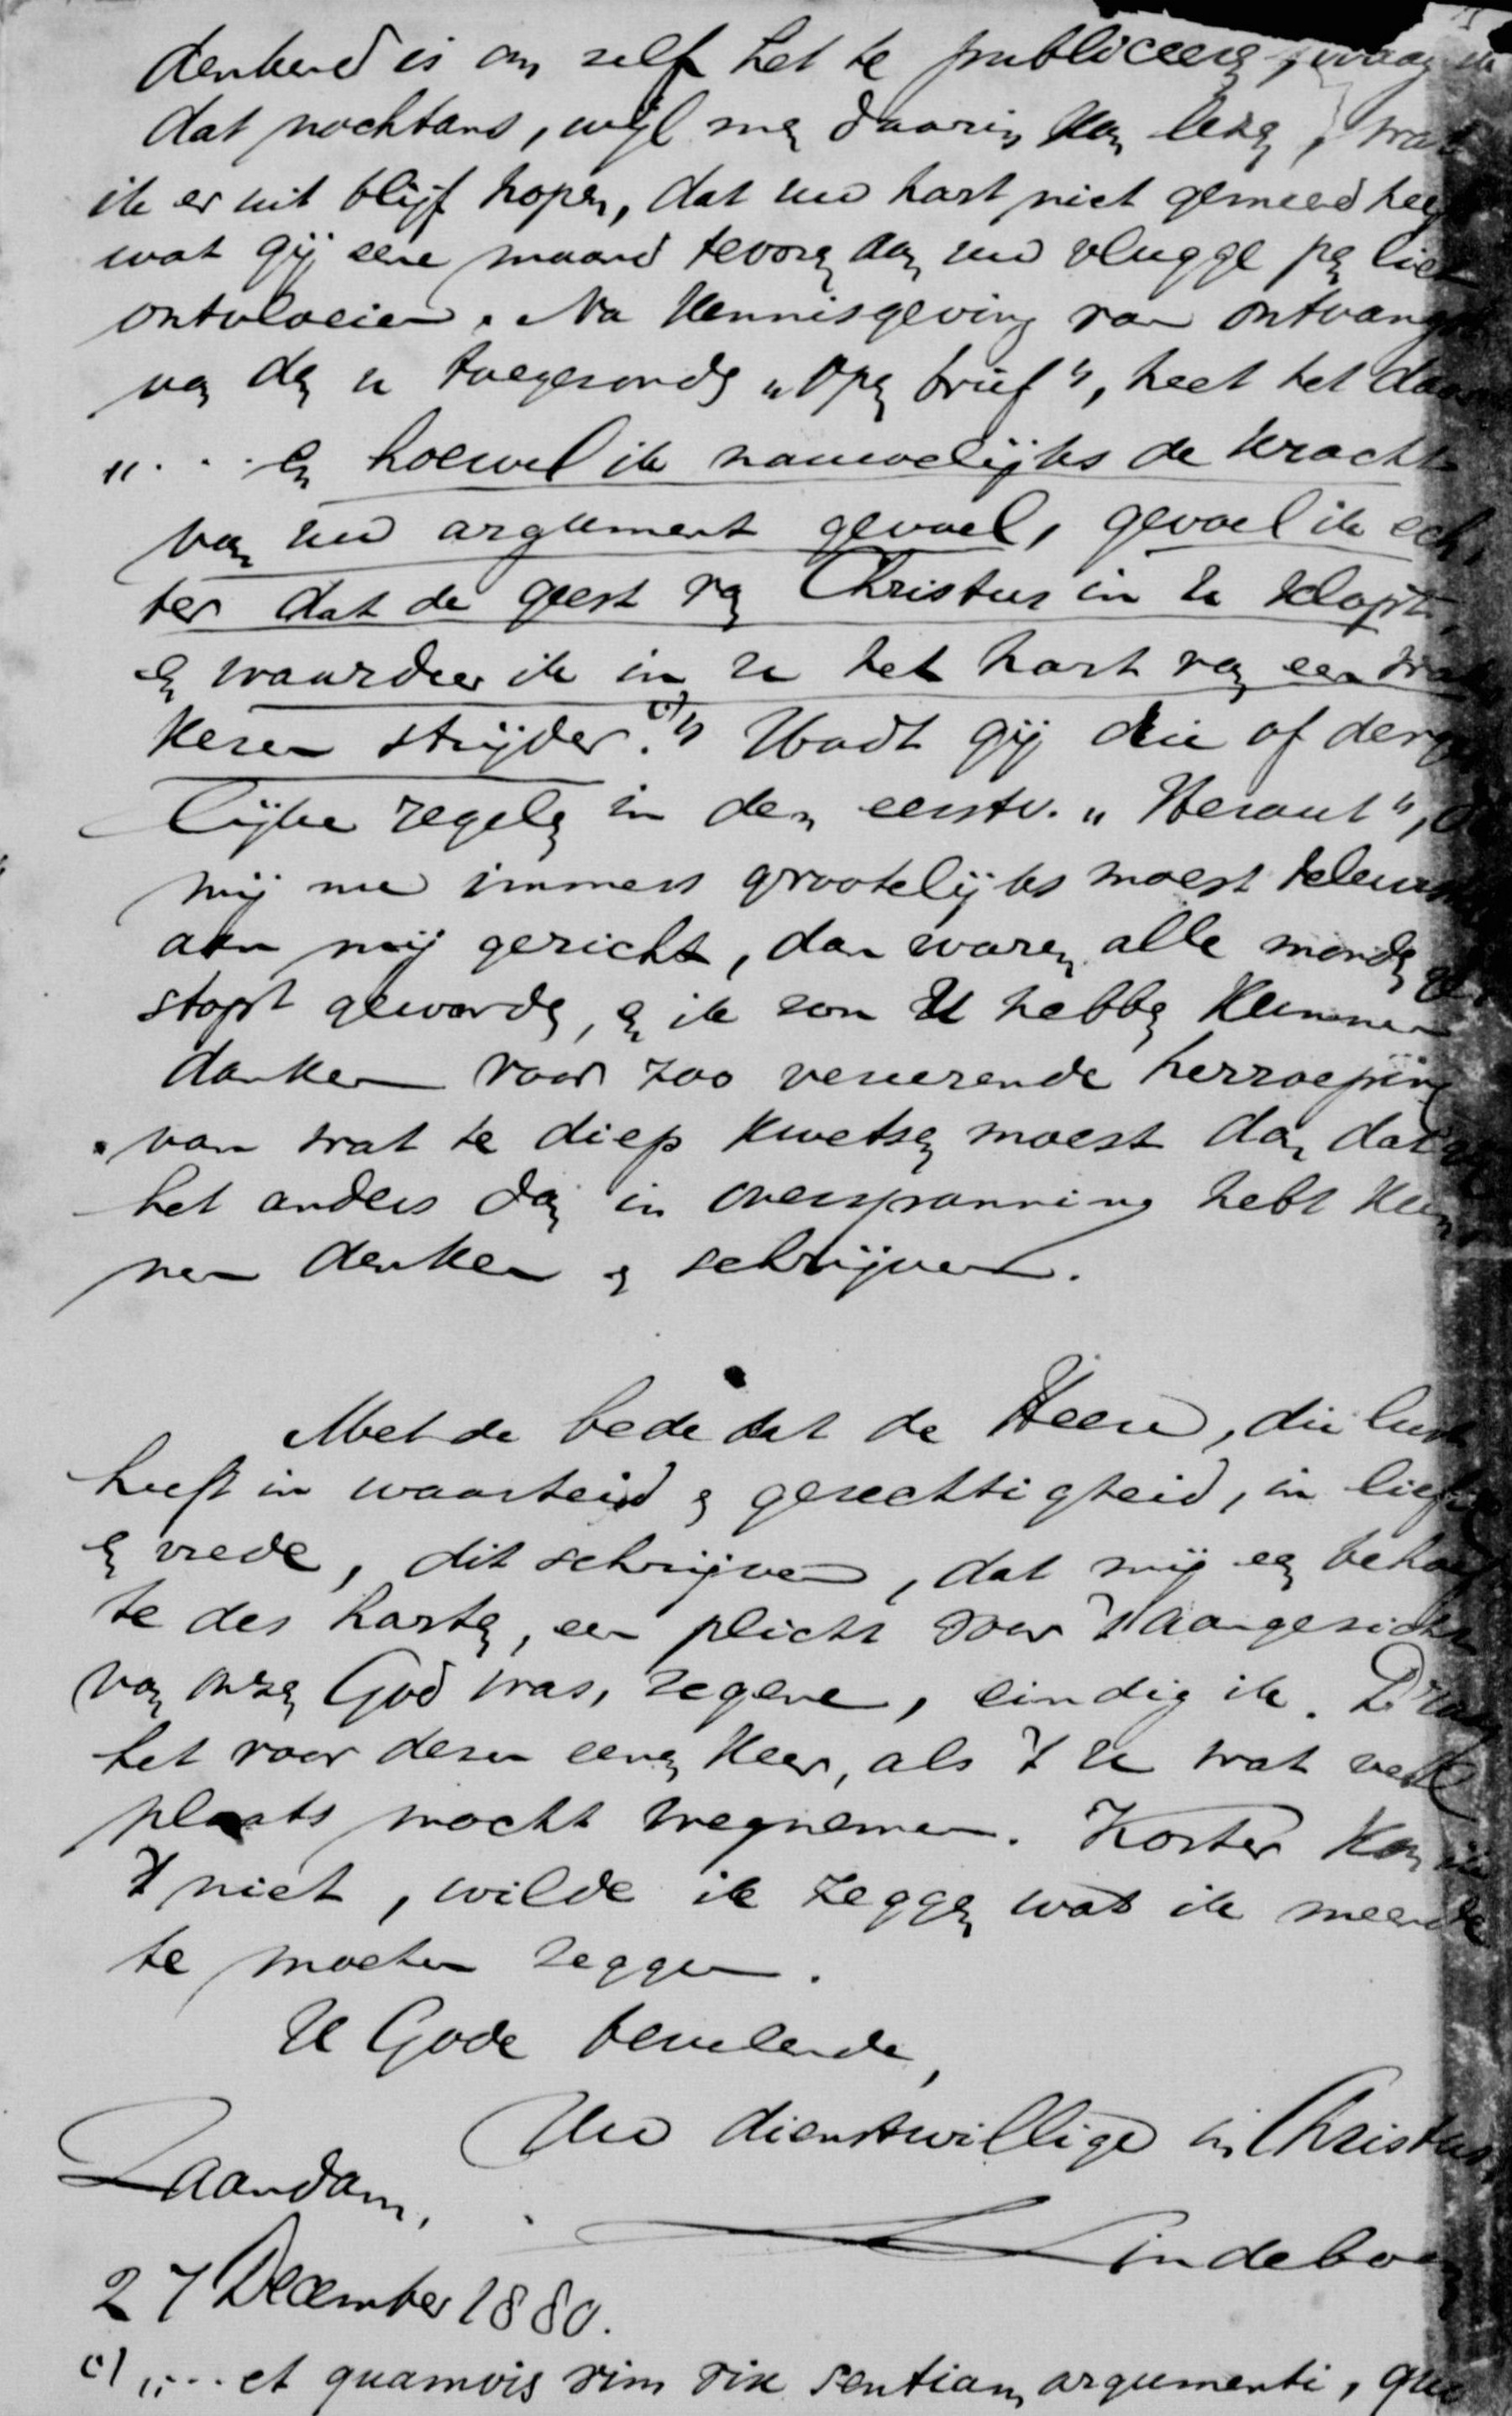 denkend is om zelf het te publiceeren, waag ik
dat nochtans, wijl men daarin kan lezen, wat
ik er uit blijf hopen, dat uw hart niet gemeend hee
wat gij eene maand tevoren aan uw vlugge pen liet
ontvloeien. Na kennisgeving van ontvangst
van den u toegezonden „Open brief", heet het daar
„... en hoewel ik nauwelijks de kracht
van uw argument gevoel, gevoel ik ech
ter dat de geest van Christus in u klopt,
en waardeer ik in u het hart van een wak
keren strijder. c)" Hadt gij die of derge
lijke regelen in den eerstv. „Heraut",
mij nu immers grootelijks moest teleur
aan mij gericht, dan waren alle monden ge
stopt geworden, en ik zou U hebben kunnen
danken voor zoo vereerende herroeping
van wat te diep kwetsen moest dan dat
het anders dan in overspanning hebt kun
nen denken en schrijven.
Met de bede dat de Heere, die lust
heeft in waarheid en gerechtigheid, in liefde
en vrede, dit schrijven, dat mij een behoef
te des harten, een plicht voor 't aangezicht
van onzen God was, zegene, eindig ik. Draag
het voor dezen eenen keer, als 't U wat veel
plaats mocht wegnemen. Korter kon ik
't niet, wilde ik zeggen wat ik meende
te moeten zeggen.
U Gode bevelende,
Uw dienstwillige in Christus,
Zaandam,
Lindeboom
27 December 1880.
c) „... et quamvis vim vix sentiam argumenti,